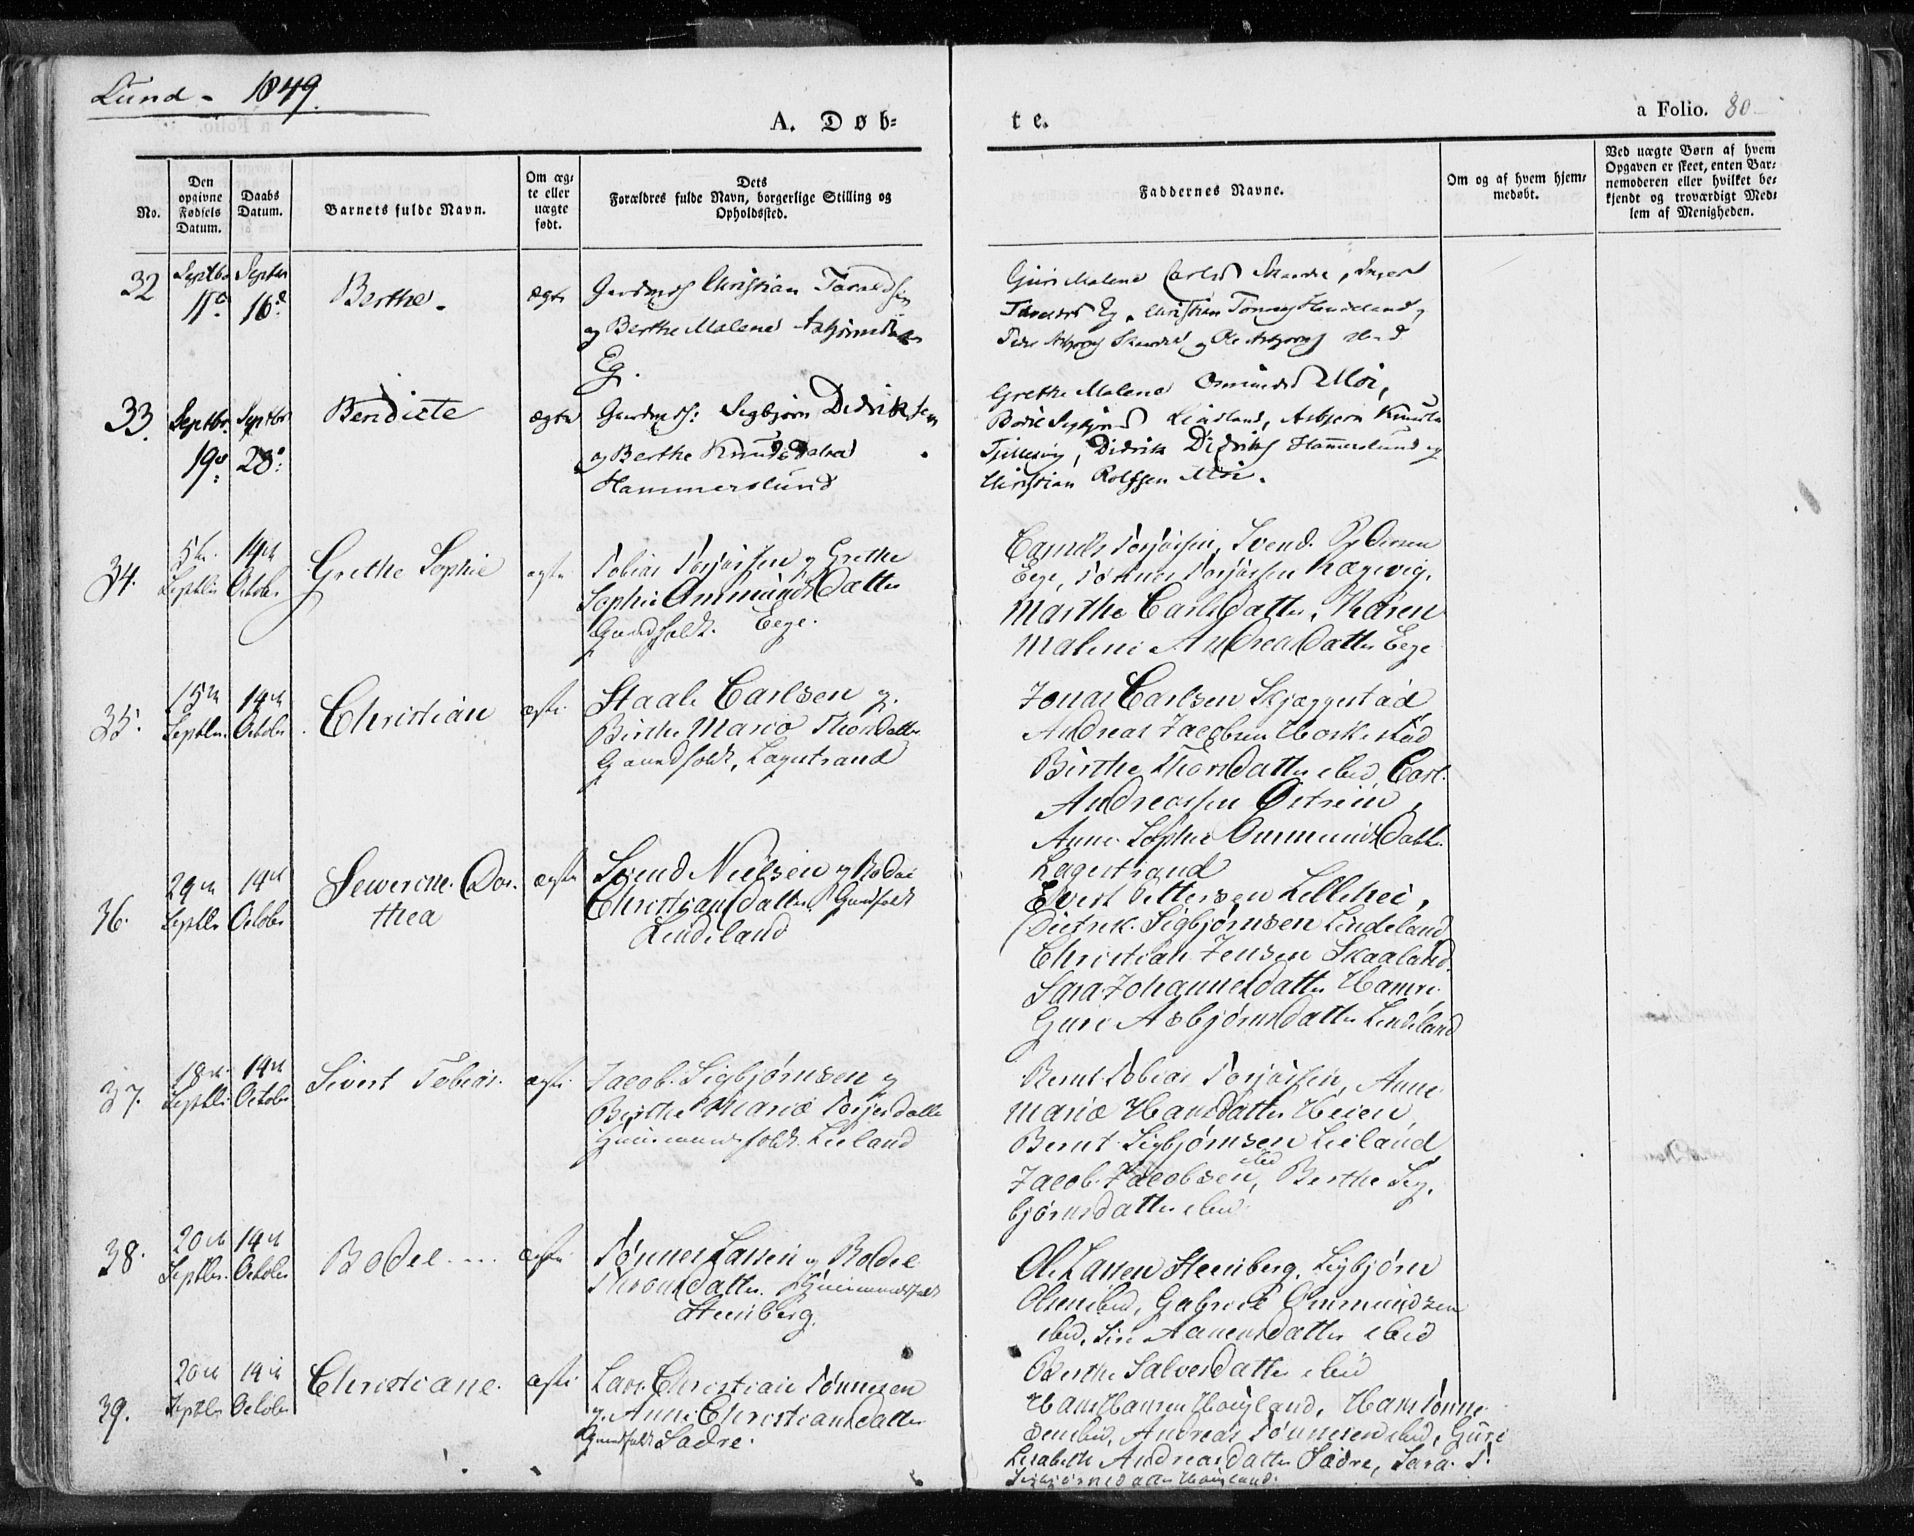 Lund - 1849.
A. Døb-
te.
a Folio. 80
No.
Den opgivne Fødsels Datum.
Daabs Datum.
Barnets fulde Navn.
Om ægte eller uægte født.
Dets
Forældres fulde Navn, borgerlige Stilling og
Opholdssted.
Faddernes Navne.
Om og af hvem hjem-
medøbt.
Ved uægte Børn af hvem
Opgaven er skeet, enten Bar-
nemoderen eller hvilket be-
kjendt og troværdigt Med-
lem af Menigheden.
32
Septbr
Septbr
Berthe.
ægte
Christian
og Berthe Malene
Eg.
Malene Carlsd
Eg, Christian
og Ole
33.
Septbr. 19de
Septbr 23de
Bendicte
ægte
Segbjørn Didriksen
og Berthe Knudsdatter
Hammerslund
Grethe Malene Omundsd Moi,
Bodil Segbjørnsd Lindland, Asbjørn
Didrik Didriks Hammerslund og
Christian Rolfsen Moi.
34.
5te Septbr
14de Octobr
Grethe Sophie
ægte
Tobias Torjussen og Grethe
Sophie Ommundsdatter
Gaardfolk. Eege.
Torjussen, Svend Pedersen
Eege, Tønnes Torjussen Rægevig,
Marthe Carlsdatter, Karen
Malene Andreasdatter Eege
35.
15de Septbr.
14de Octobr
Christian
ægte
Staale Carlsen og
Birthe Maria Thorsdatter
Gaardfolk, Lagestrand
Jonas Carlsen Skjæggestad
Andreas Jacobsen
Birthe Thorsdatter ibid, Carl
Andreassen Østreim,
Anne Sophie Ommundsdatter
Lagestrand
36.
29de Septbr
14de Octobr
Sewerine Dor-
thea
ægte
Svend Nielsen og Bodil
Christiansdatter, Gaardfolk
Lindeland
Evert Pettersen Lillehei,
Didrik Sigbjørnsen Lindeland
Christian Jensen Skaaland.
Sara Johannesdatter Hamre
Guri Asbjørnsdatter Lindeland
37.
18de Septbr
14de Octobr
Sivert Tobias.
ægte
Jacob Sigbjørnsen og
Birthe Maria Torjersdatter
Huusmandsfolk. Lieland
Bernt Tobias Torjussen, Anne
Maria Hansdatter Heien,
Bernt Sigbjørnsen Lieland
Jacob Jacobsen ibid, Berthe Sig-
bjørnsdatter ibid.
38.
20de Septbr.
14de Octobr
Bodel
ægte
Tønnes Larsen og Bodel
Thronsdatter. Huusmandsfolk
Steenberg.
Ole Larsen Steenberg, Sigbjørn
Olsen ibid, Gabriel Ommundsen
ibid, Siri Aanensdatter ibid
Berthe Salvesdatter ibid
39.
20de Septbr
14de Octobr
Christiane.
ægte
Lars Christian Tønnesen
og Anne Christiansdatter
Gaardfolk Sadre.
Hans Hansen Haugland, Hans Tønne-
sen ibid, Andreas Tønnesen ibid, Guri
Lisabeth Andreasdatter Sadre, Sara S.
Sigbjørnsdatter Haugland.